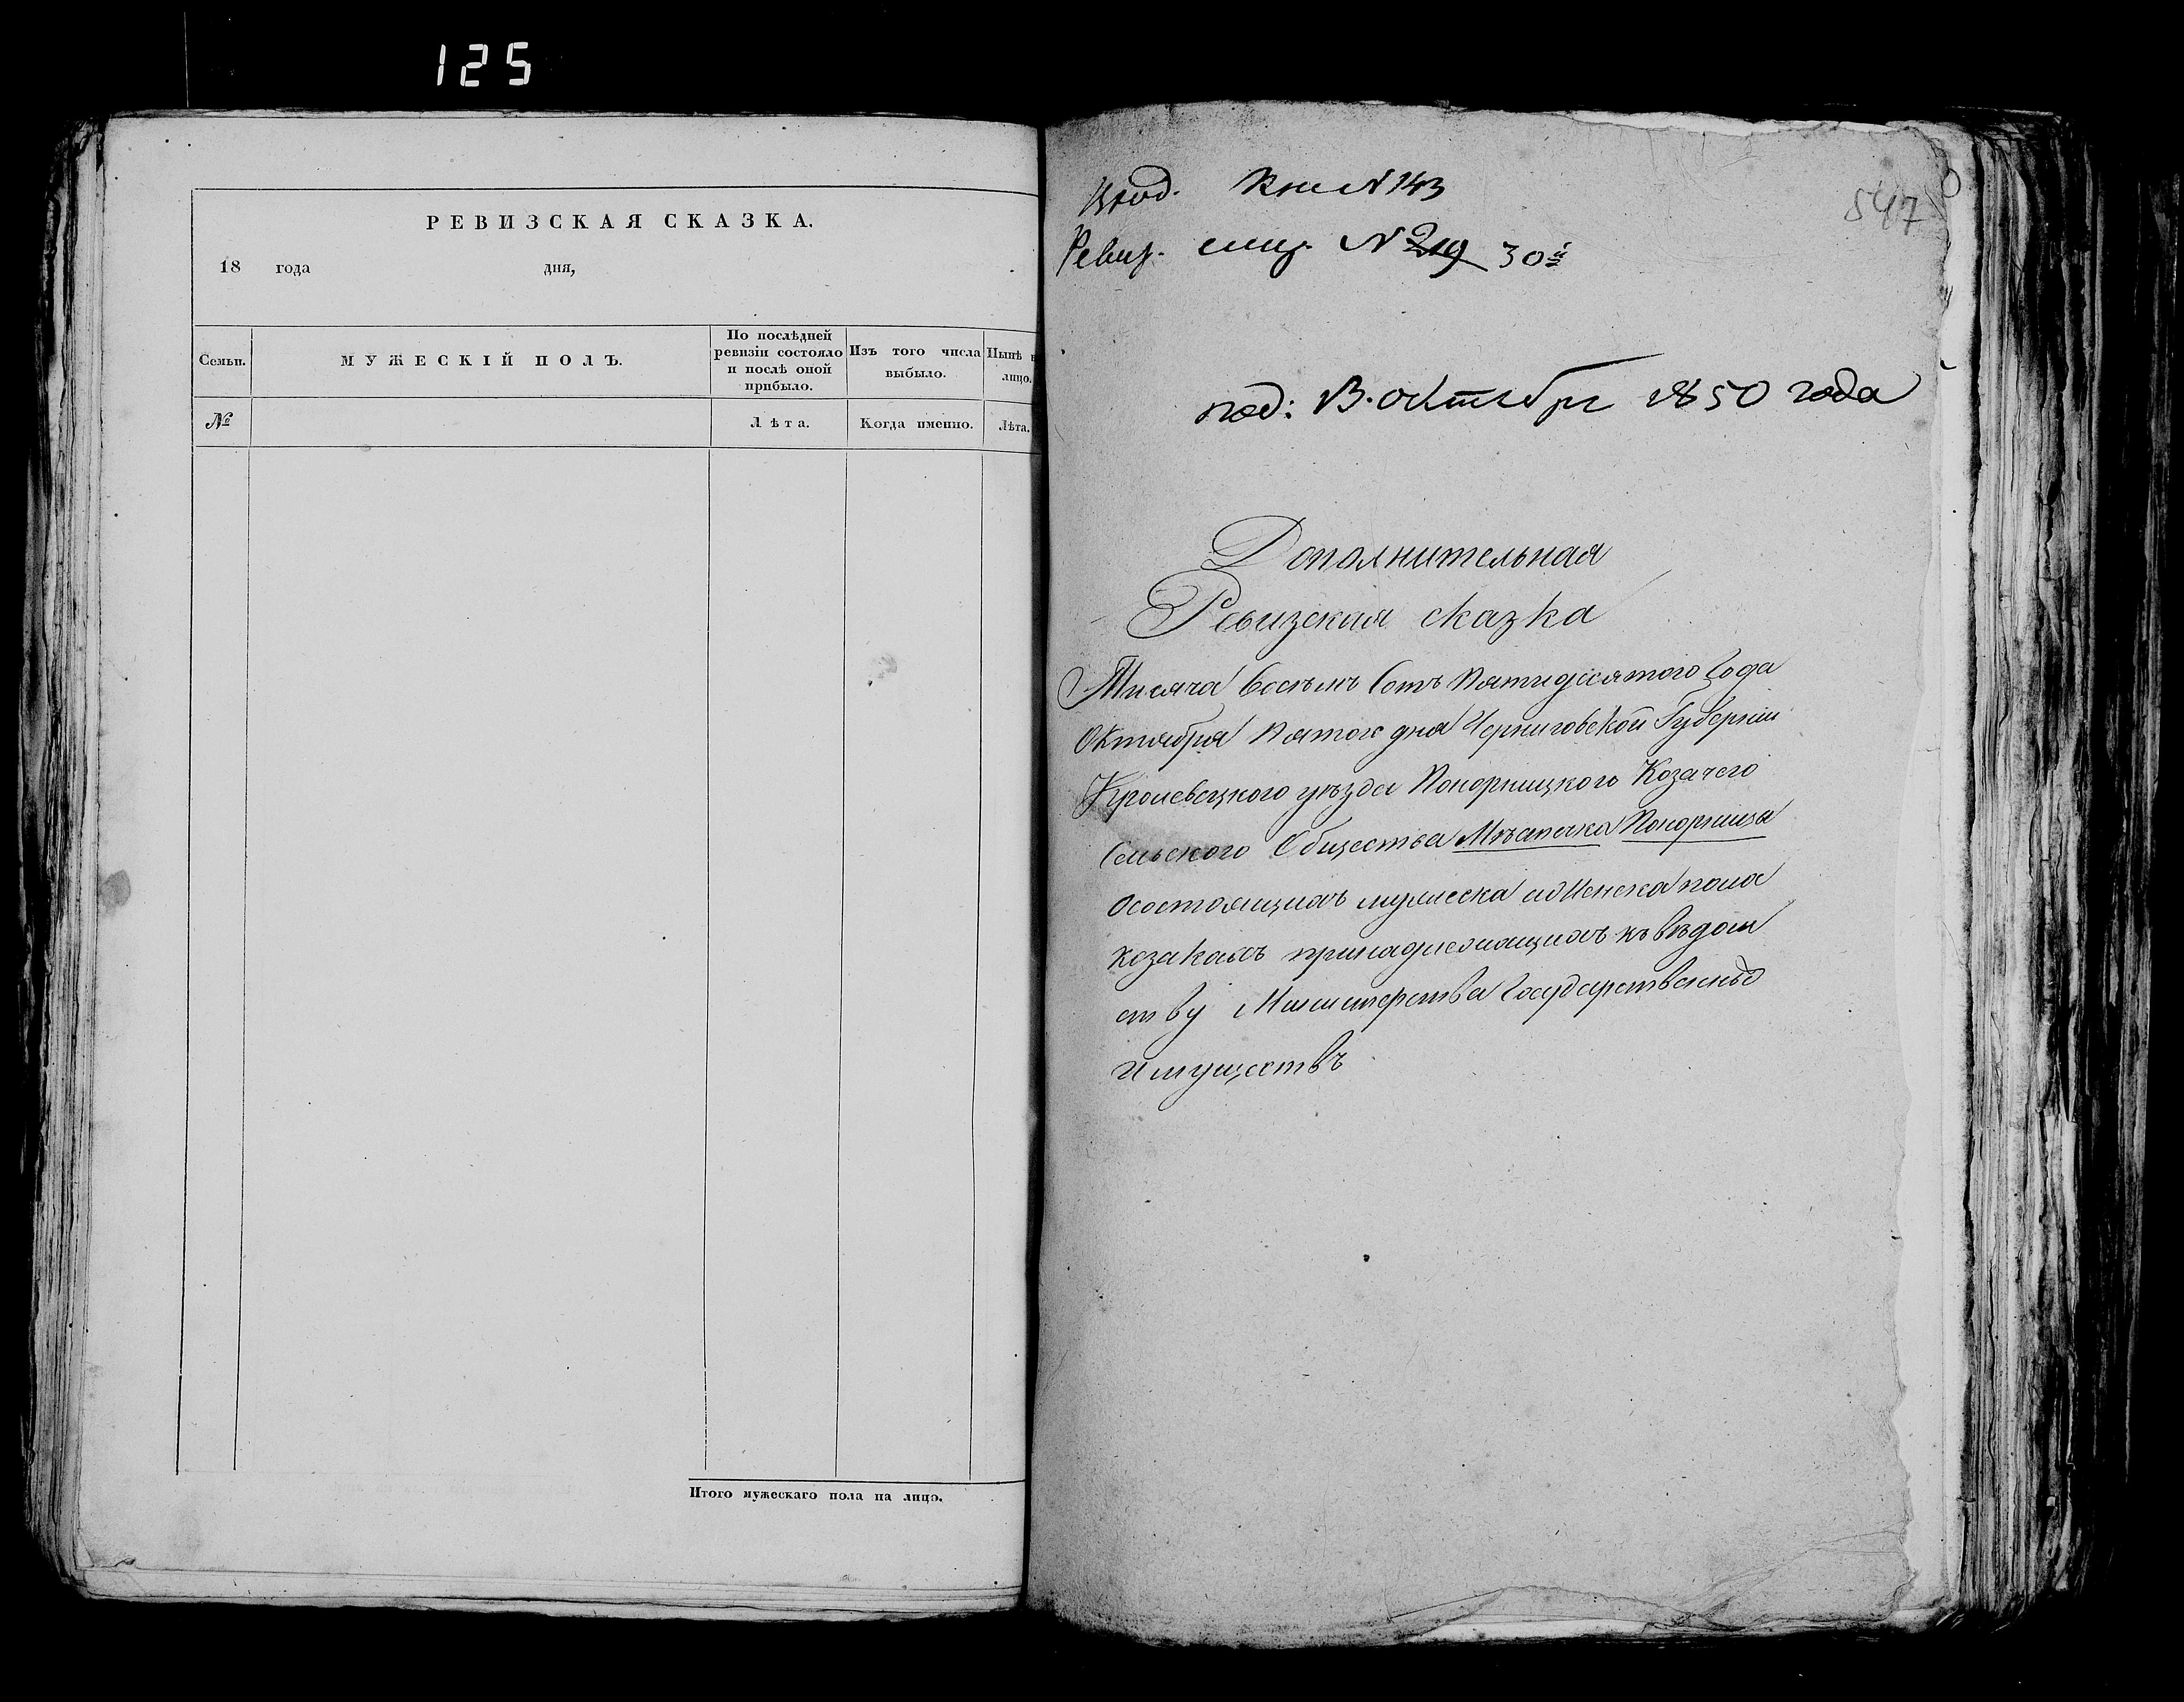 125
РЕВИЗСКАЯ СКАЗКА.
18 года дня,
Семьи.
МУЖЕСКІЙ ПОЛЪ.
По послѣдней
ревизіи состояло
и послѣ оной
прибыло.
Изъ того числа
выбыло.
Нынѣ
лицо.
№
Лѣта.
Когда именно.
Лѣта.
Итого мужескаго пола на лицо.
547
Вход. Кни N 143
Ревиз. N 219 30й
под: В. октября 1850 года
Дополнительная
Ревизская сказка
Тисяча восемь сотъ пятидесятого года
Октября пятого дня Черниговской Губерніи
Кролевецкого уѣзда Понорницкого Козачего
Сельского Общества Мѣстечка Понорница
Осостоящихъ мужеска и женска пола
козакахъ принадлежащихъ къ вѣдом
ству Министерства Государственныхъ
имуществъ